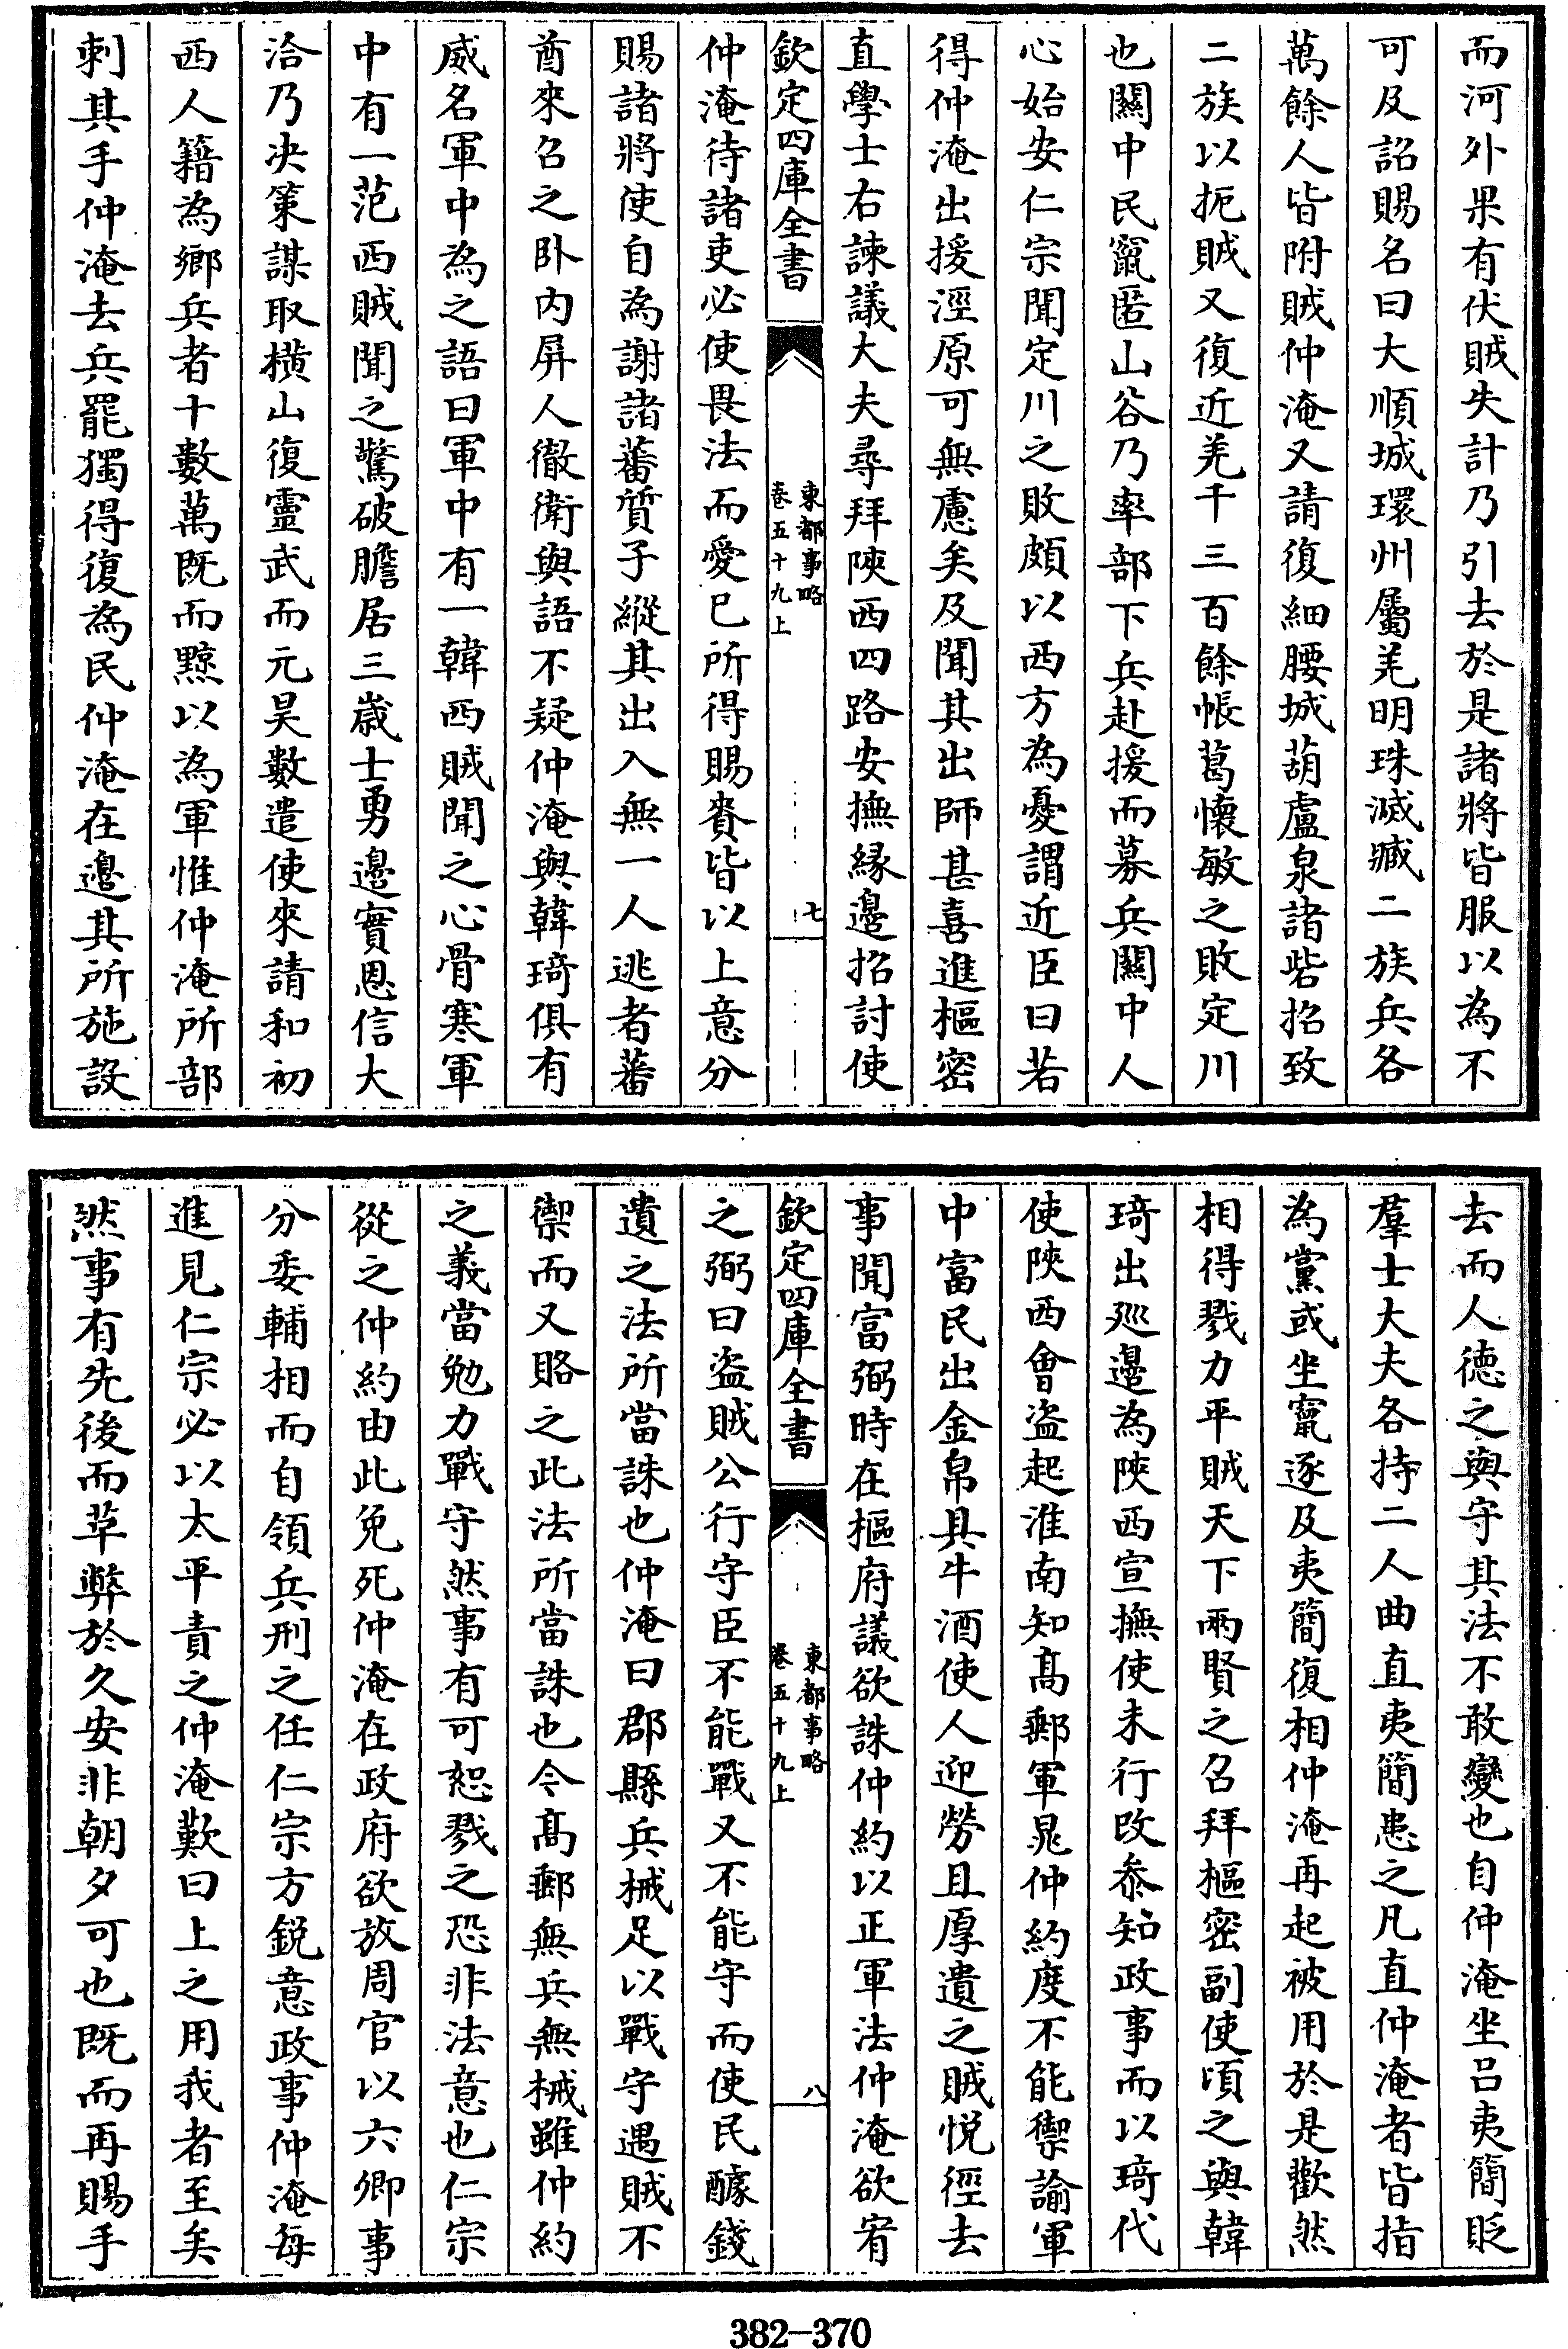 而河外果有伏賊失計乃引去於是諸將皆服以為不
可及詔賜名曰大順城環州屬羌明珠滅臧二族兵各
萬餘人皆附賊仲淹又請復細腰城葫盧泉諸砦招致
二族以扼賊又復近羌千三百餘帳葛懷敏之敗定川
也關中民竄匿山谷乃率部下兵赴援而募兵關中人
心始安仁宗聞定川之敗頗以西方為憂謂近臣曰若
得仲淹出援涇原可無慮矣及聞其出師甚喜進樞密
直學士右諫議大夫尋拜陜西四路安撫縁邊招討使
欽定四庫全書
東都事略
卷五十九上
七
仲淹待諸吏必使畏法而愛已所得賜賚皆以上意分
賜諸將使自為謝諸蕃質子縱其出入無一人逃者蕃
酋來召之卧内屏人徹衛與語不疑仲淹與韓琦俱有
威名軍中為之語曰軍中有一韓西賊聞之心骨寒軍
中有一范西賊聞之驚破膽居三歲士勇邊實恩信大
洽乃决策謀取橫山復靈武而元昊數遣使來請和初
西人籍為鄉兵者十數萬既而黥以為軍惟仲淹所部
刺其手仲淹去兵罷獨得復為民仲淹在邊其所施設
去而人德之與守其法不敢變也自仲淹坐吕夷簡貶
羣士大夫各持二人曲直夷簡患之凡直仲淹者皆指
為黨或坐竄逐及夷簡復相仲淹再起被用於是歡然
相得戮力平賊天下兩賢之召拜樞密副使頃之與韓
琦出廵邊為陜西宣撫使未行改叅知政事而以琦代
使陜西會盜起淮南知髙郵軍晁仲約度不能禦諭軍
中富民出金帛具牛酒使人迎勞且厚遺之賊悅徑去
事聞富弼時在樞府議欲誅仲約以正軍法仲淹欲宥
欽定四庫全書
東都事略
卷五十九上
八
之弼曰盜賊公行守臣不能戰又不能守而使民醵錢
遺之法所當誅也仲淹曰郡縣兵械足以戰守遇賊不
禦而又賂之此法所當誅也今髙郵無兵無械雖仲約
之義當勉力戰守然事有可恕戮之恐非法意也仁宗
從之仲約由此免死仲淹在政府欲放周官以六卿事
分委輔相而自領兵刑之任仁宗方鋭意政事仲淹每
進見仁宗必以太平責之仲淹歎曰上之用我者至矣
然事有先後而草弊於久安非朝夕可也既而再賜手
382—370